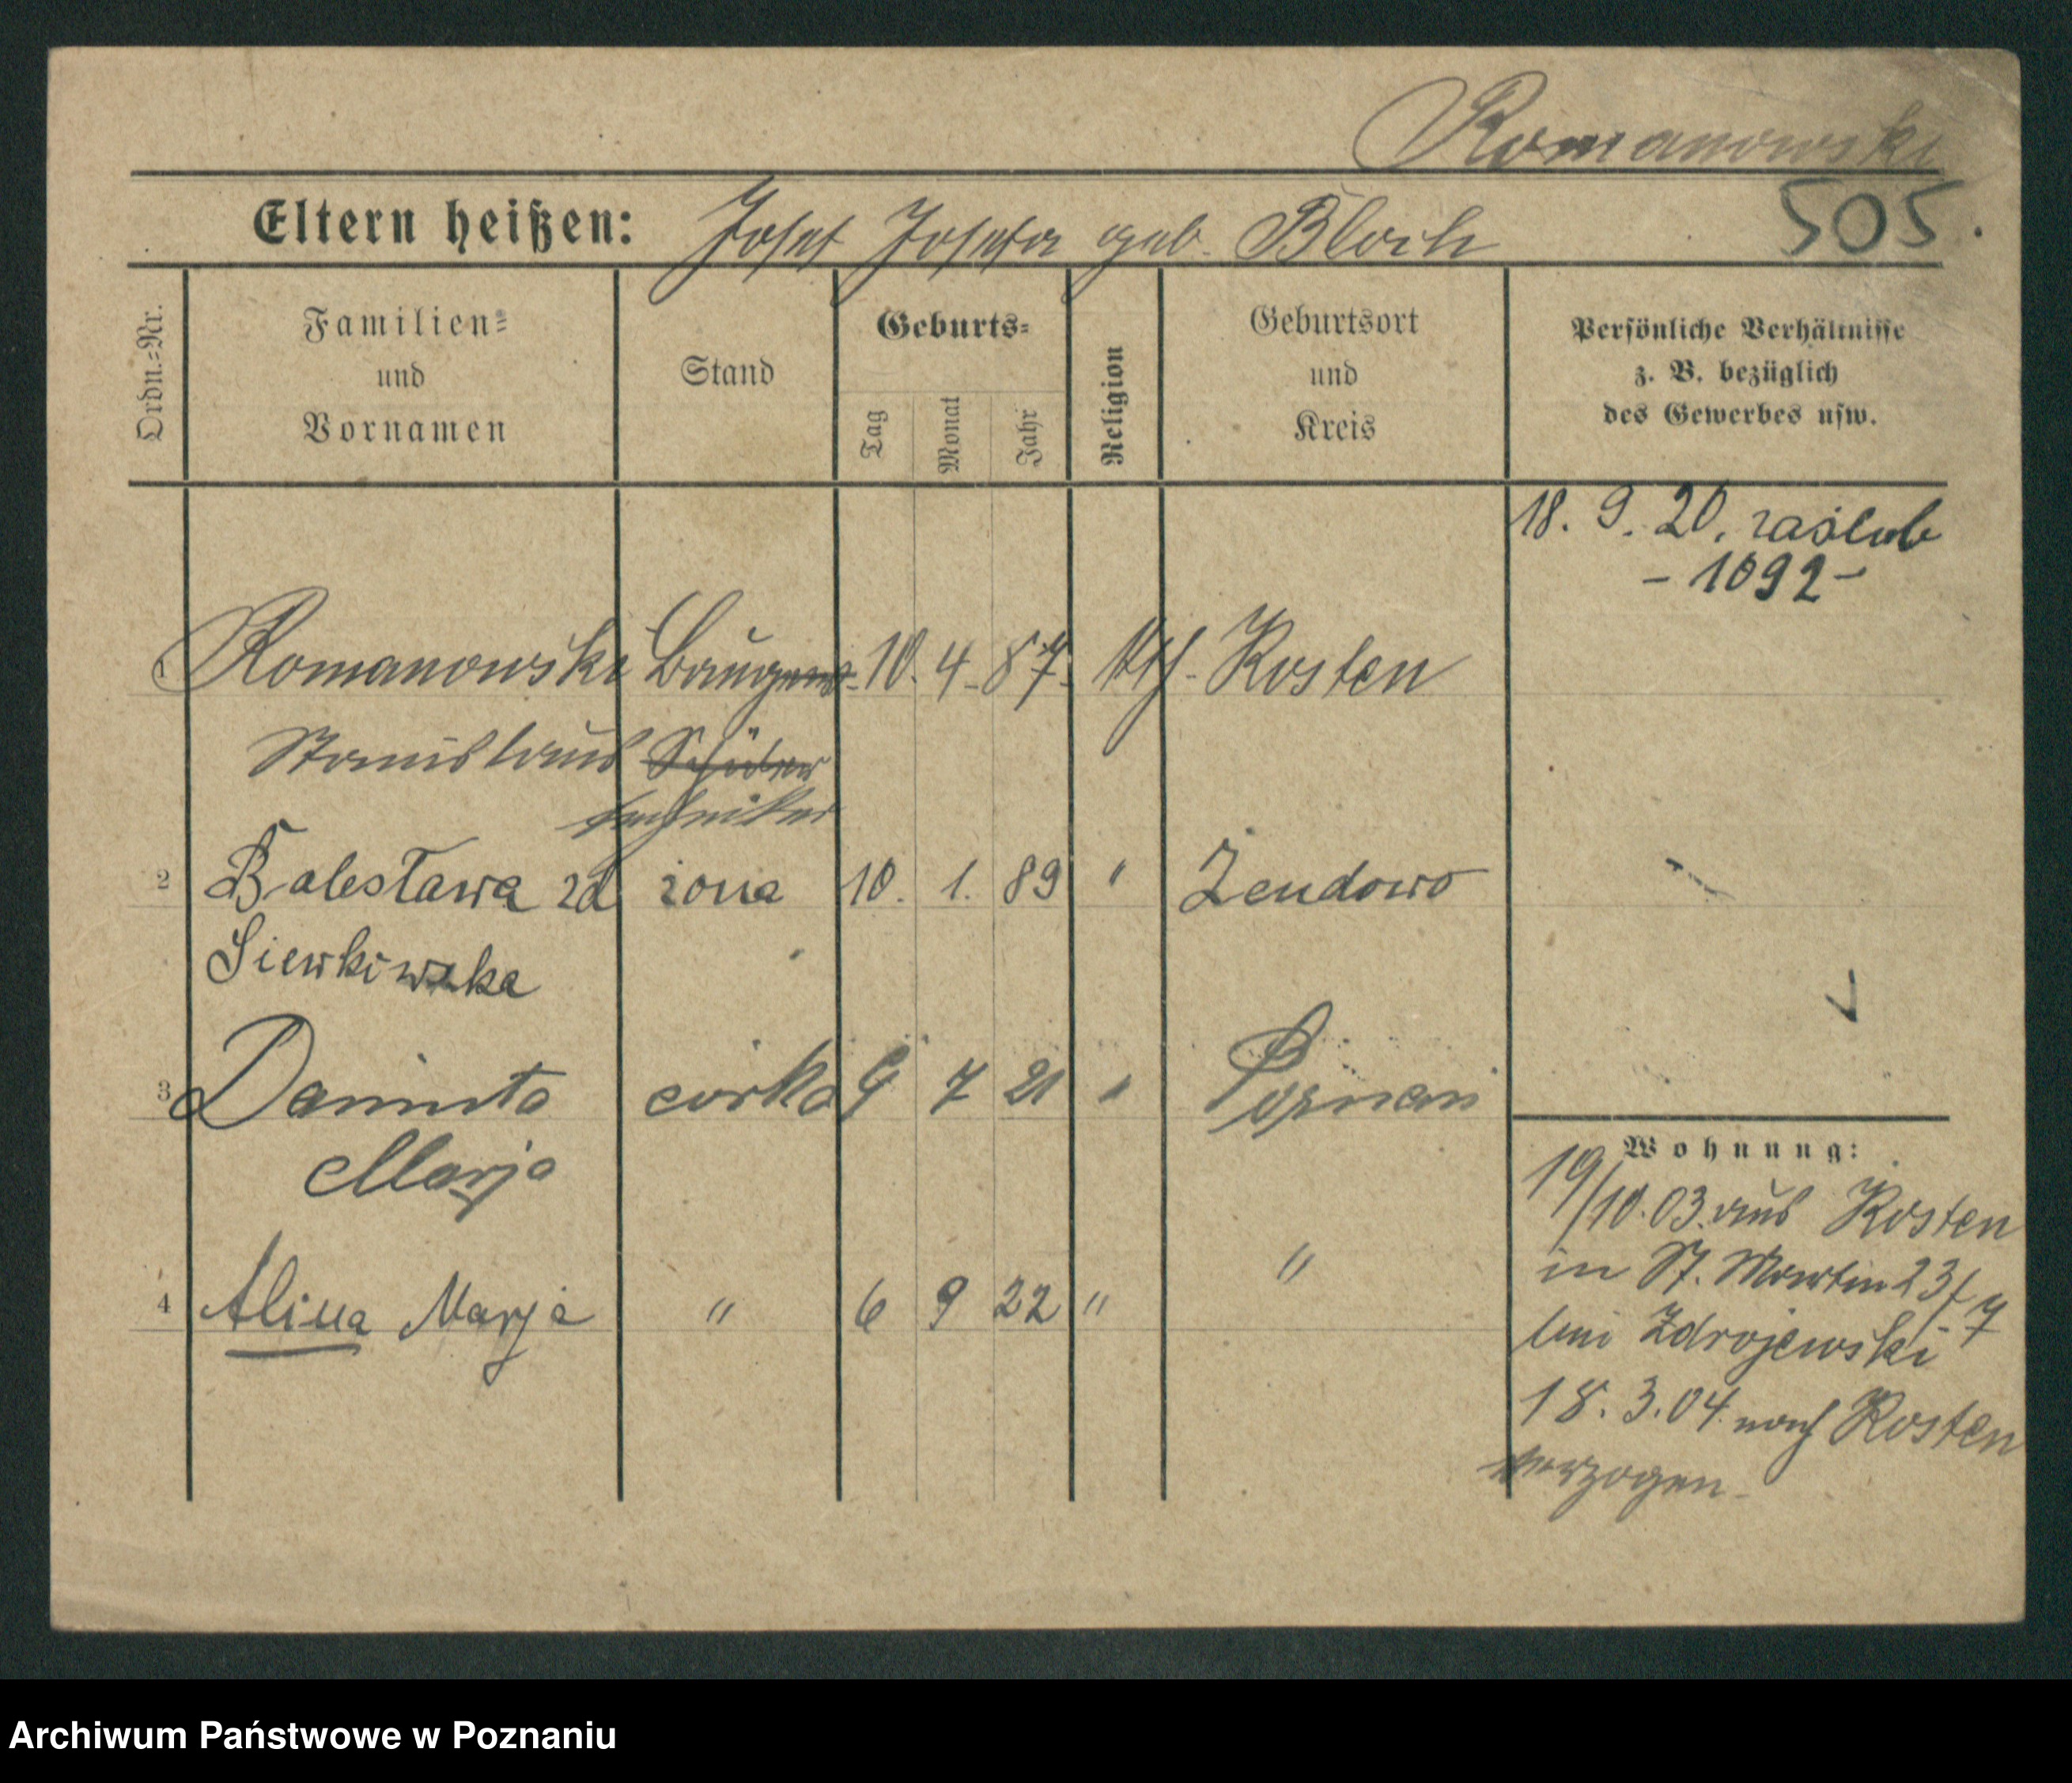 Romanowski
Eltern heißen: Josef Josefa geb. Bloch 505.
Ordn.=Nr. Familien= und Vornamen Stand Geburts= Tag Monat Jahr Religion Geburtsort und Kreis Persönliche Verhältnisse z. B. bezüglich des Gewerbes usw.
18. 9. 20. zaślub
- 1092 -
1 Romanowski 10. 4. 87. kth. Kosten
Stanislaus Schüler
Techniker
2 Bolesława zd żona 10. 1. 89 " Żendowo
Siewkowska
3 Danuta córka 9 7 21 " Poznań
Marja
Wohnung:
19/10.03. aus Kosten
in St. Martin 23 f. 7
bei Zdrojewski
4 Alina Marja " 6 9 22 " "
18. 3. 04. nach Kosten
verzogen
Archiwum Państwowe w Poznaniu